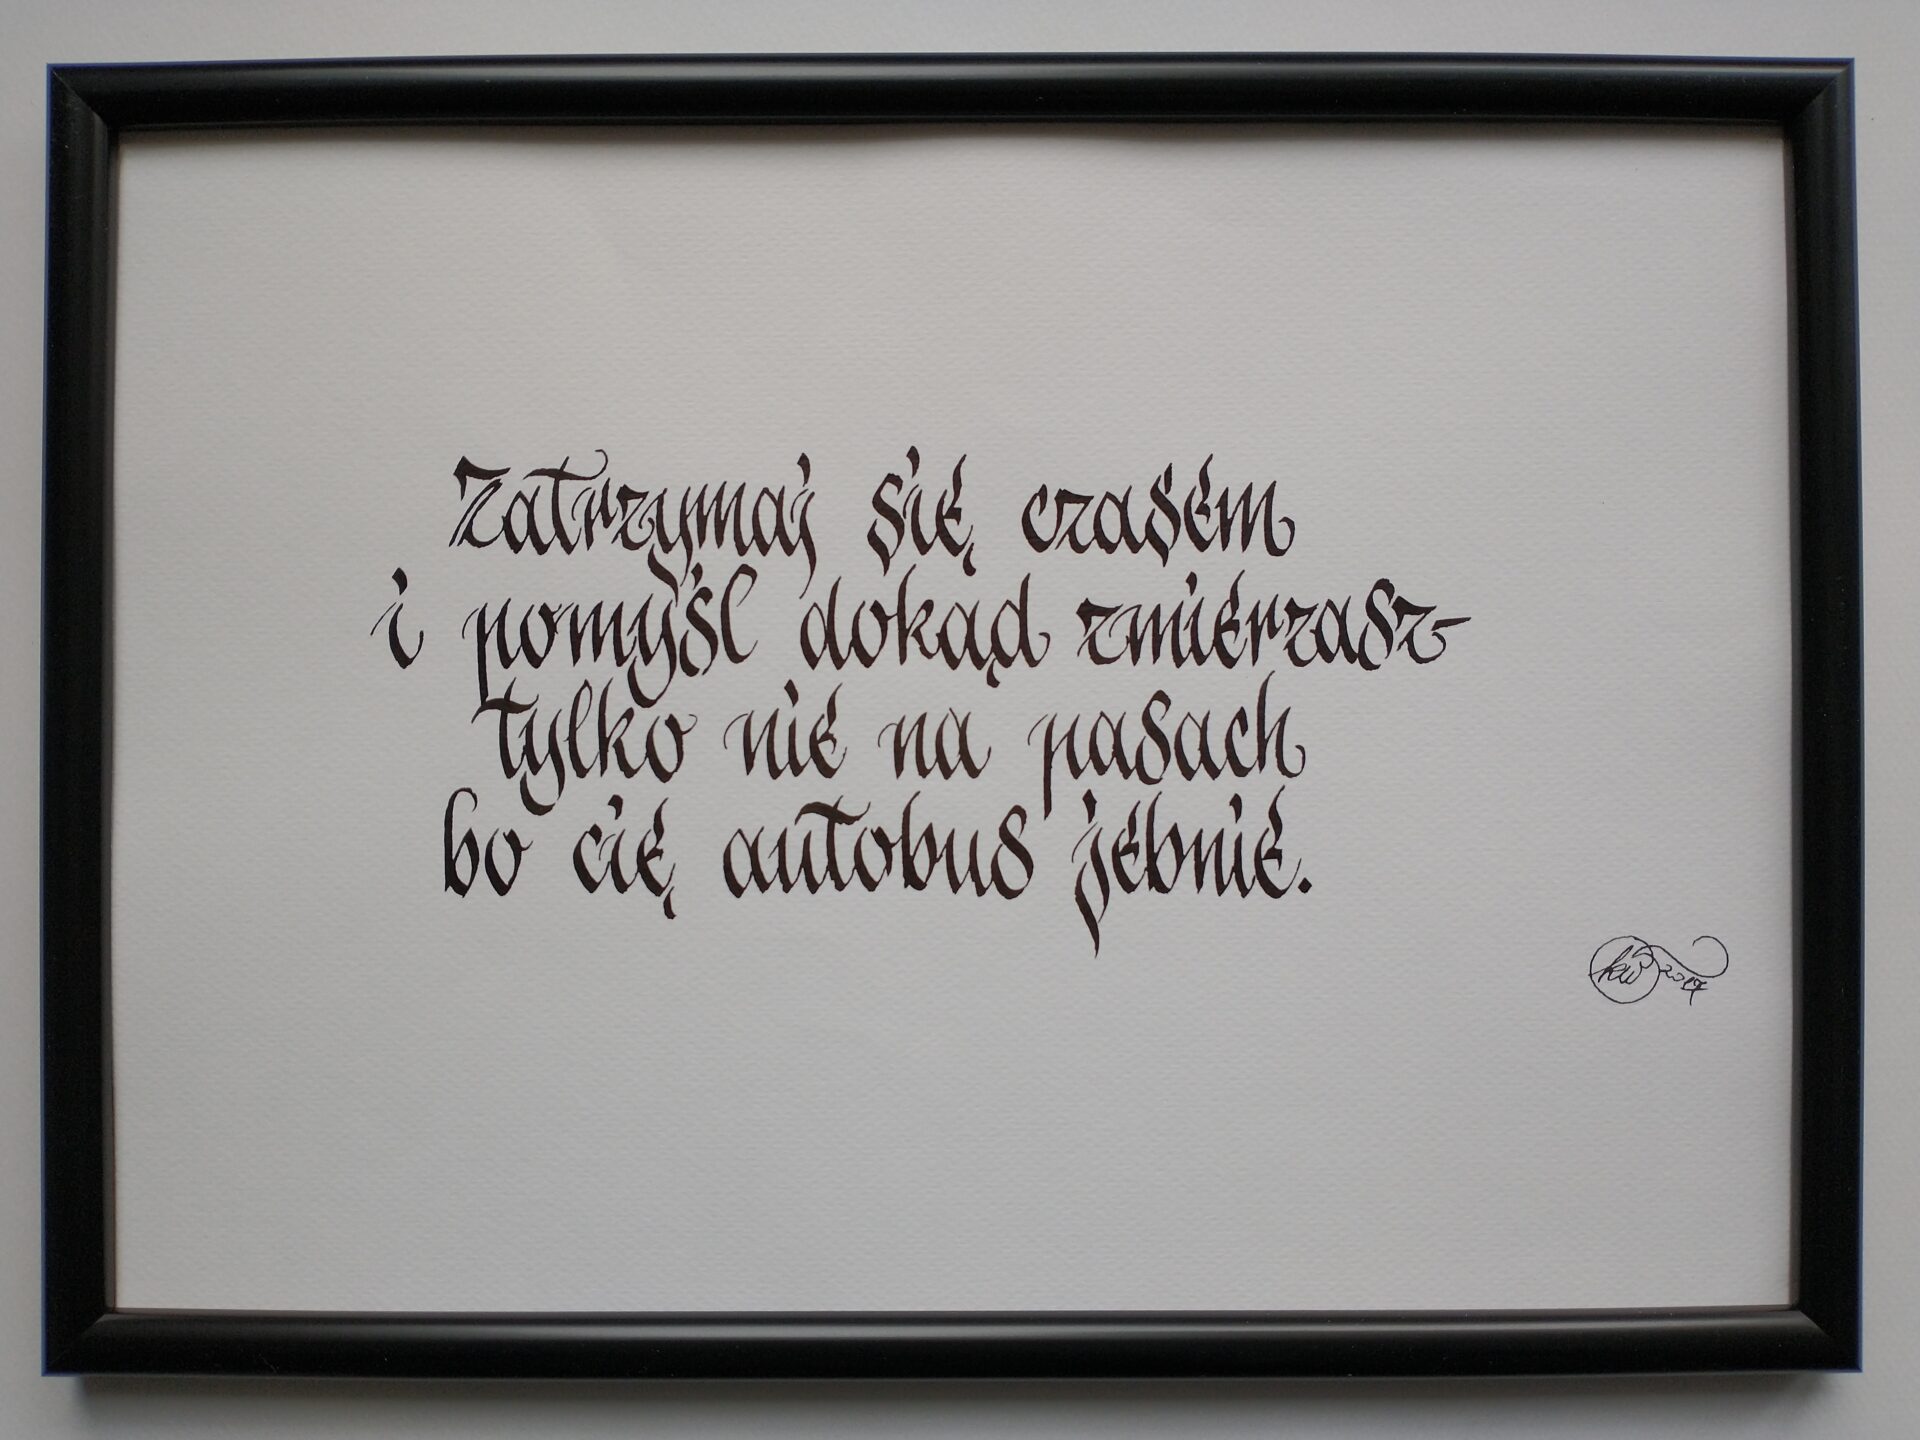 Zatrzymaj się czasem
i pomyśl dokąd zmierzasz-
tylko nie na pasach
bo cię autobus jebnie.
kw 2017